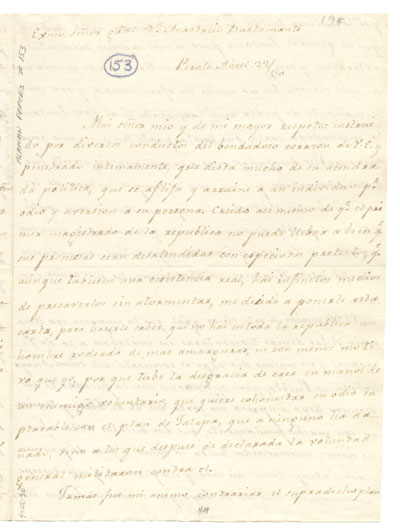 195
Exmo. Señor Gral. Dn. Anastasio Bustamante
153
Perote Abril 22/30
ALAMAN PAPERS # 153
Mui señor mio y de mi mayor respeto: instrui-
do por diversos conductos del bondadoso corazon de V.E. y
penetrado intimamente, que dista mucho de su acendra-
da politica, que se aflija y arruine a un individuo pr.
odio y aversion a su persona: Creido asi mismo de qe. el pri-
mer magistrado de la republica no puede llebar a bien qe.
sus promesas sean desatendidas con especiosos pretextos, y qe.
aunque tubiesen una existencia real, hai infinitos medios
de precaverlos sin atormentar, me decidi a ponerle esta
carta, para hacerle saber, que no hai en toda la republica un
hombre rodeado de mas amarguras, ni con menos moti-
vo que yo, por que tube la desgracia de caer en manos de
un enemigo voluntario, que quiere cohonestar su odio im-
placable con el plan de Jalapa, que a ninguno lla da-
nado, sino a los que despues de declarada la voluntad
general maquinaron contra el.
Jamas fue mi animo contrariar el supradicho plan
4-22-30